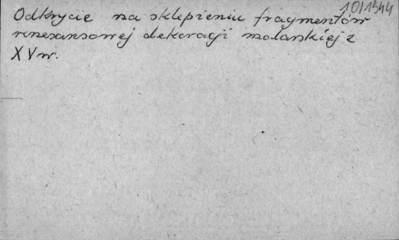 10/1344
Odkrycie na sklepieniu fragmentów
renesansowej dekoracji malarskiej z
XV w.